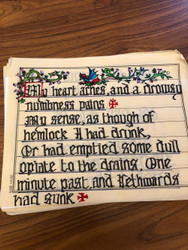 My heart aches, and a drowsy
numbness pains
My sense, as though of
hemlock I had drunk,
Or had emptied some dull
opiate to the drains, One
minute past, and Lethwards
had sunk